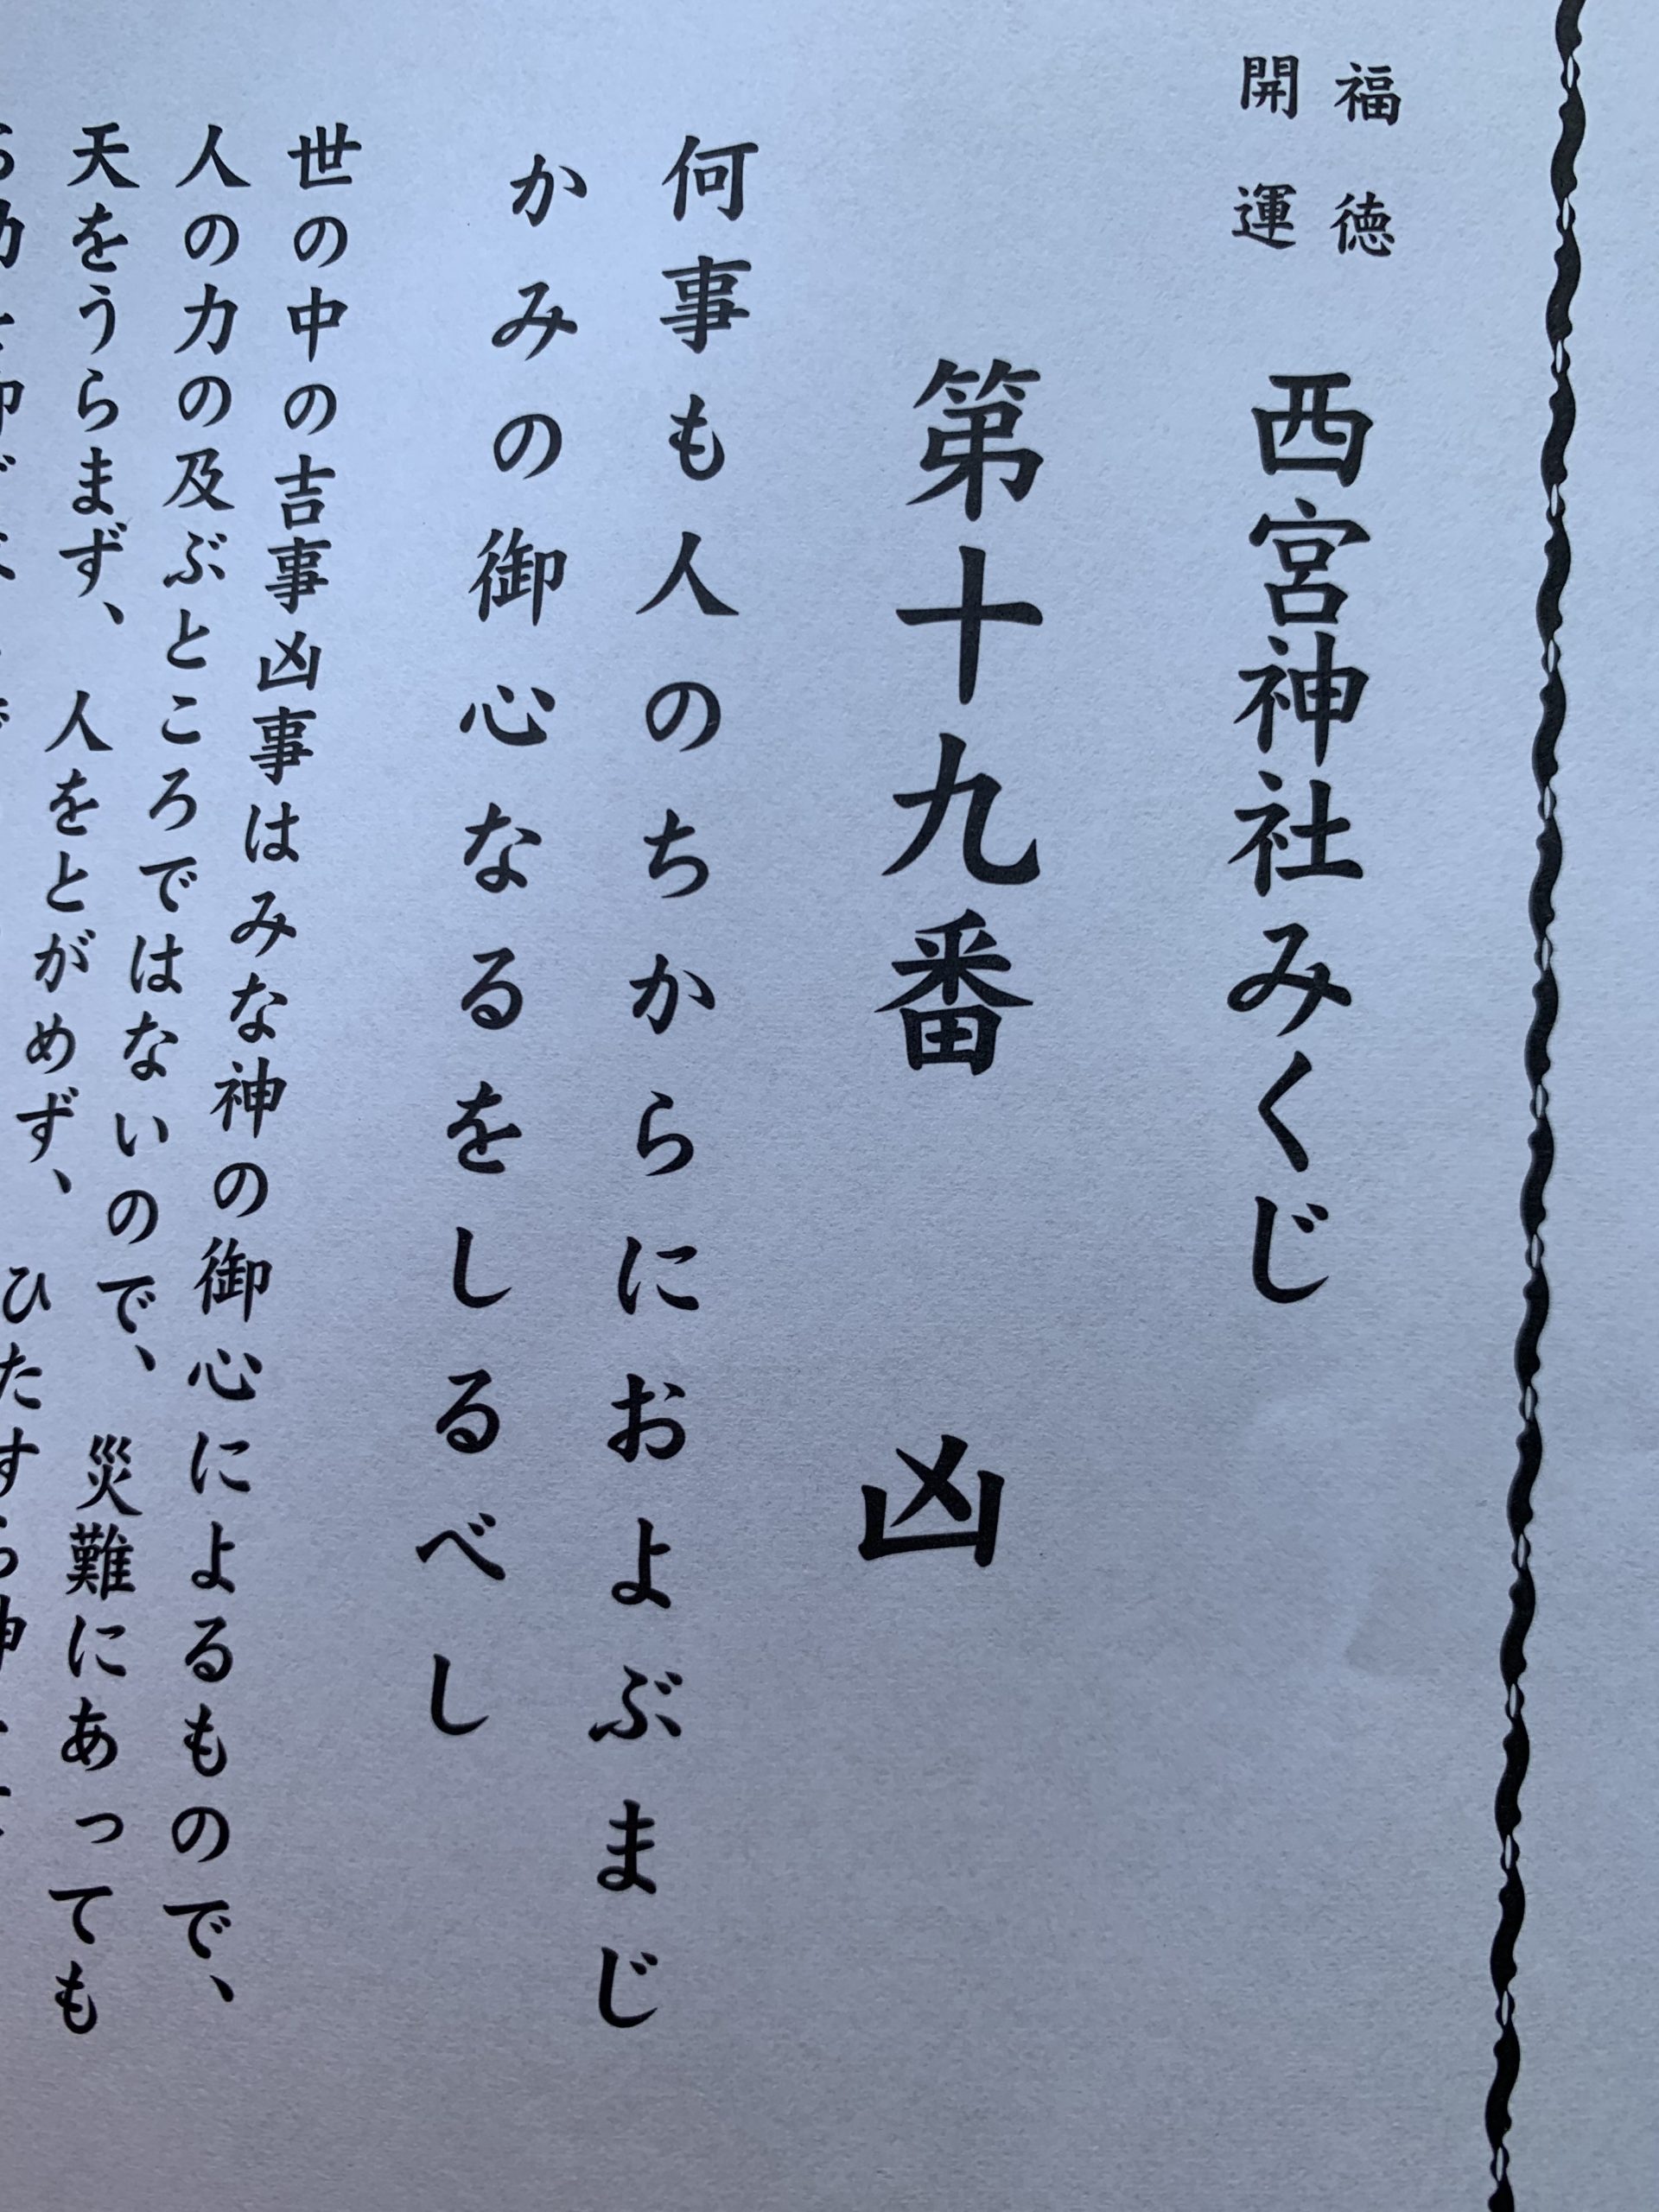 福徳
開運
西宮神社みくじ
第十九番 凶
何事も人のちからにおよぶまじ
かみの御心なるをしるべし
世の中の吉事凶事はみな神の御心によるもので、
人の力の及ぶところではないので、災難にあっても
天をうらまず、人をとがめず、ひたすら神